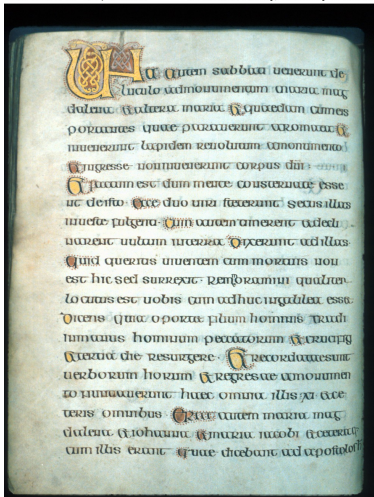 Una Autem sabbati uenerunt de
luculo admonumentum maria mag
dalena & altera maria & quaedam cum eis
portantes quae parauerunt aromata &
inuenerunt lapidem reuolutum amonumento
& ingresse non inuenerunt corpus dni
& factum est dum mente consternate esse
nt de isto Ecce duo uiri steterunt secus illas
inueste fulgenti Cum autem timerent & decli
narent uultum interram Dixerunt ad illas
Quid queritis uiuentem cum mortuis non
est hic sed surrexit Rememoramini qualiter
locutus est uobis cum adhuc ingalilea esset
Dicens Quia oportet filium hominis tradi
inmanus hominum peccatorum & crucifigi
& tertia die resurgere & recordatae sunt
uerborum horum & regressae amonumen
to nuntiauerunt haec omnia illis xi & ce
teris omnibus Erat autem maria mag
dalena & iohanna & maria iacobi &
cum illis erant quae dicebant ad apostolos